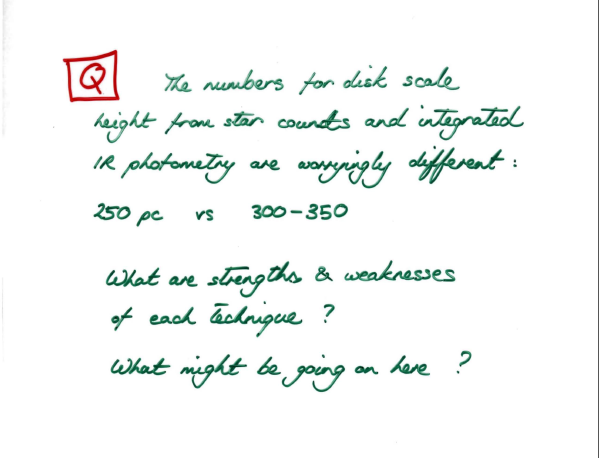 Q The numbers for disk scale
height from star counts and integrated
IR photometry are worryingly different :
250 pc vs 300-350
What are strengths & weaknesses
of each technique ?
What might be going on here ?